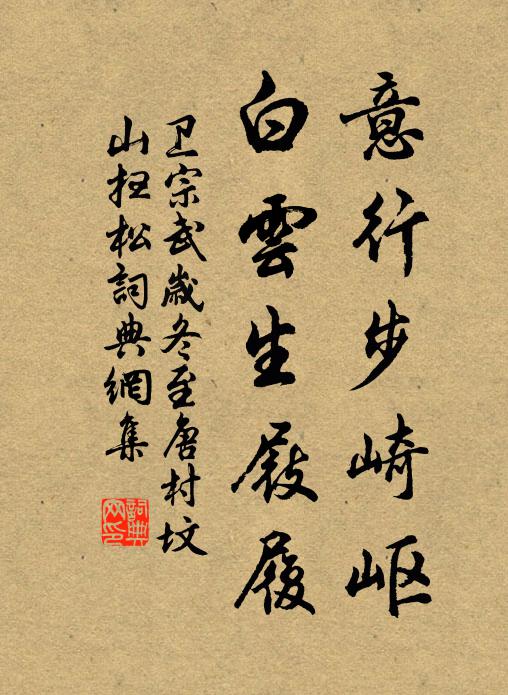 意行步崎岖
白雲生屐履
卫宗武歲冬至唐村坟
山扫松詞典網集
詞典
网印